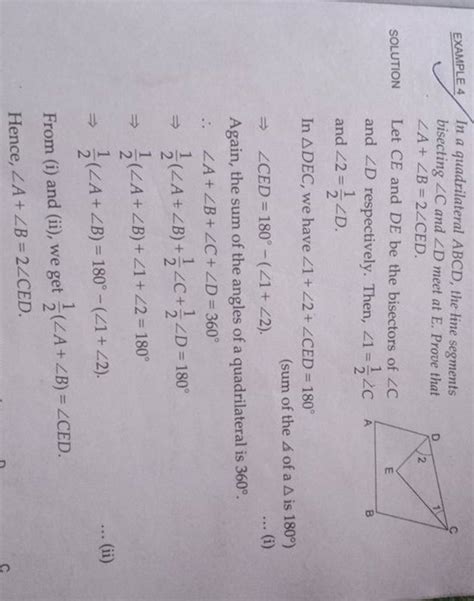 EXAMPLE 4 In a quadrilateral ABCD, the line segments
bisecting ∠C and ∠D meet at E. Prove that
∠A + ∠B = 2∠CED.
SOLUTION Let CE and DE be the bisectors of ∠C
and ∠D respectively. Then, ∠1 = 1/2 ∠C
and ∠2 = 1/2 ∠D.
D
C
2
1
E
A
B
In △DEC, we have ∠1 + ∠2 + ∠CED = 180°
(sum of the ∡ of a △ is 180°)
⇒ ∠CED = 180° − (∠1 + ∠2). ... (i)
Again, the sum of the angles of a quadrilateral is 360°.
∴ ∠A + ∠B + ∠C + ∠D = 360°
⇒ 1/2 (∠A + ∠B) + 1/2 ∠C + 1/2 ∠D = 180°
⇒ 1/2 (∠A + ∠B) + ∠1 + ∠2 = 180°
⇒ 1/2 (∠A + ∠B) = 180° − (∠1 + ∠2). ... (ii)
From (i) and (ii), we get 1/2 (∠A + ∠B) = ∠CED.
Hence, ∠A + ∠B = 2∠CED.